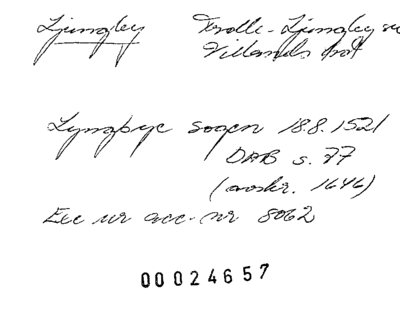 Ljungby Trolle-Ljungby sn
Villands hd
Lyngbye sogen 18.8.1521
DAB s. 77
(avskr. 1646)
Exc ur acc-nr 8062
00024657